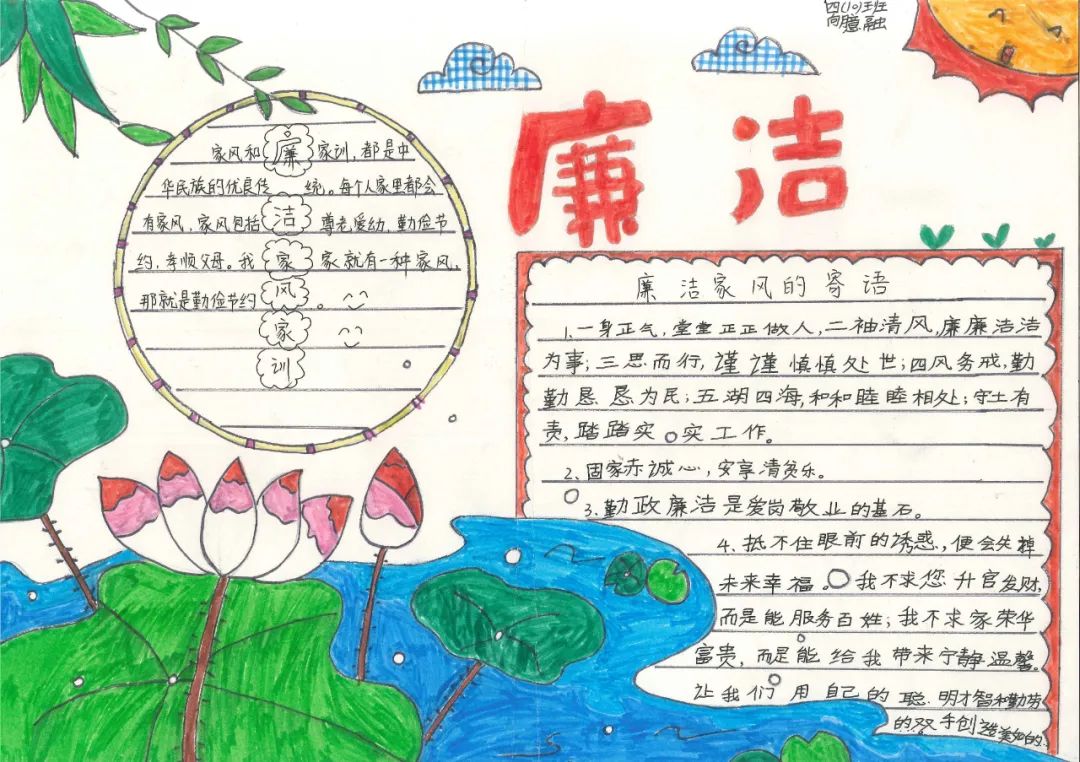 四(10)班
廉 洁
家风和 家训,都是中
华民族的优良传 统。每个人家里都会
有家风,家风包括 尊老爱幼,勤俭节
约,孝顺父母。我 家就有一种家风,
那就是勤俭节约 。
廉
洁
家
风
家
训
廉洁家风的寄语
1、一身正气,堂堂正正做人,二袖清风,廉廉洁洁
为事;三思而行,谨谨慎慎处世;四风务戒,勤
勤恳恳为民;五湖四海,和和睦睦相处;守土有
责,踏踏实实工作。
2、固家赤诚心,安享清贫乐。
3、勤政廉洁是爱岗敬业的基石。
4、抵不住眼前的诱惑,便会失掉
未来幸福。我不求您升官发财,
而是能服务百姓;我不求家荣华
富贵,而是能给我带来宁静温馨。
让我们用自己的聪明才智和勤劳
的双手创造美好的